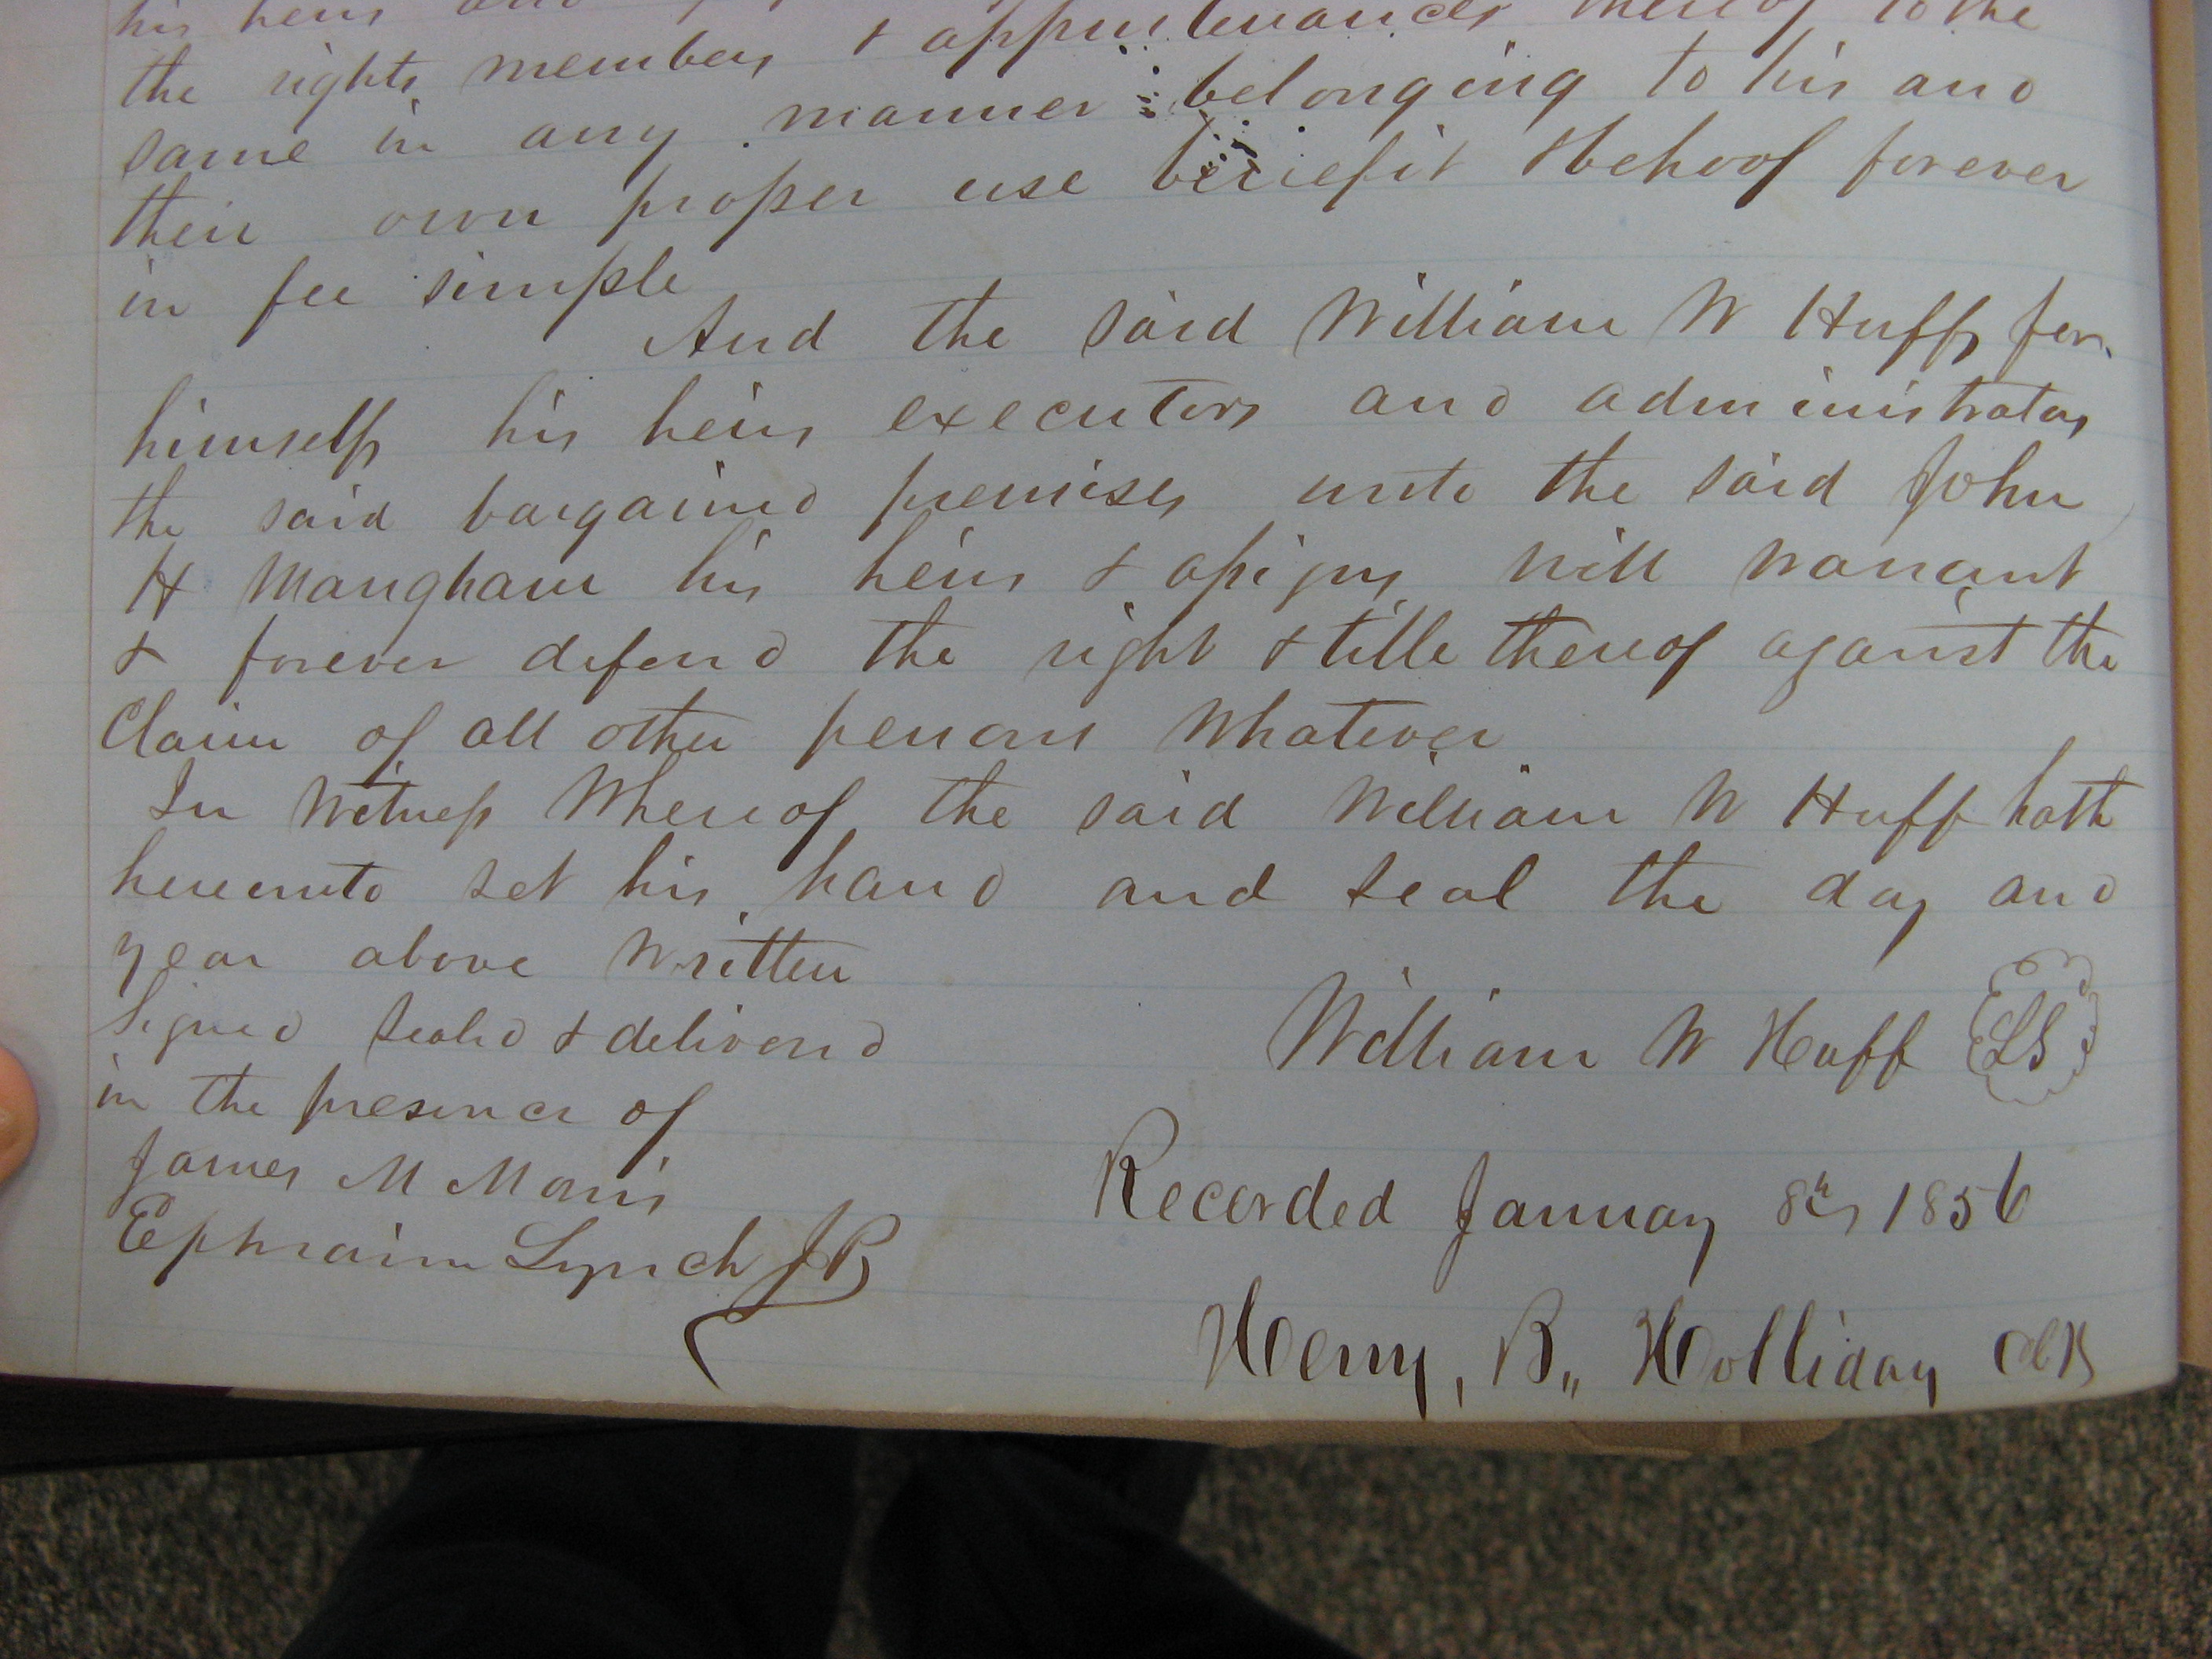 his heirs and
the rights members & appurtenances thereof to the
same in any manner belonging to his and
their own proper use benefit & behoof forever
in fee simple
And the said William W Huff for
himself his heirs executors and administrators
the said bargained premises unto the said John
H Mangham his heirs & assigns will warrant
& forever defend the right & title thereof against the
Claim of all other persons whatever
In Witness Whereof the said William W Huff hath
hereunto set his hand and seal the day and
year above written
Signed sealed & delivered
in the presence of
James M Morris
Ephraim Lynch JP
William W Huff LS
Recorded January 8th 1856
Henry, B,, Holliday Clk